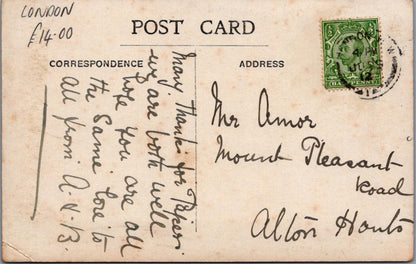 LONDON
£14.00
POST CARD
CORRESPONDENCE
ADDRESS
Many thanks for Papers
we are both well
hope you are all
the same love to
all from A & B.
Mr Amor
Mount Pleasant
Road
Alton Hants